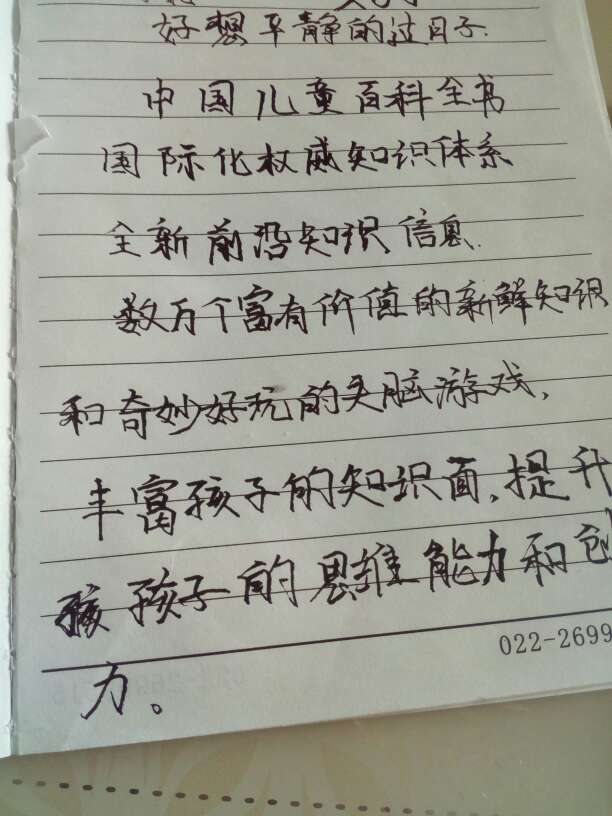 好想平静的过日子.
中国儿童百科全书
国际化权威知识体系
全新前沿知识信息.
数万个富有价值的新鲜知识
和奇妙好玩的头脑游戏,
丰富孩子的知识面,提升
孩子的思维能力和创
022-2699
力。